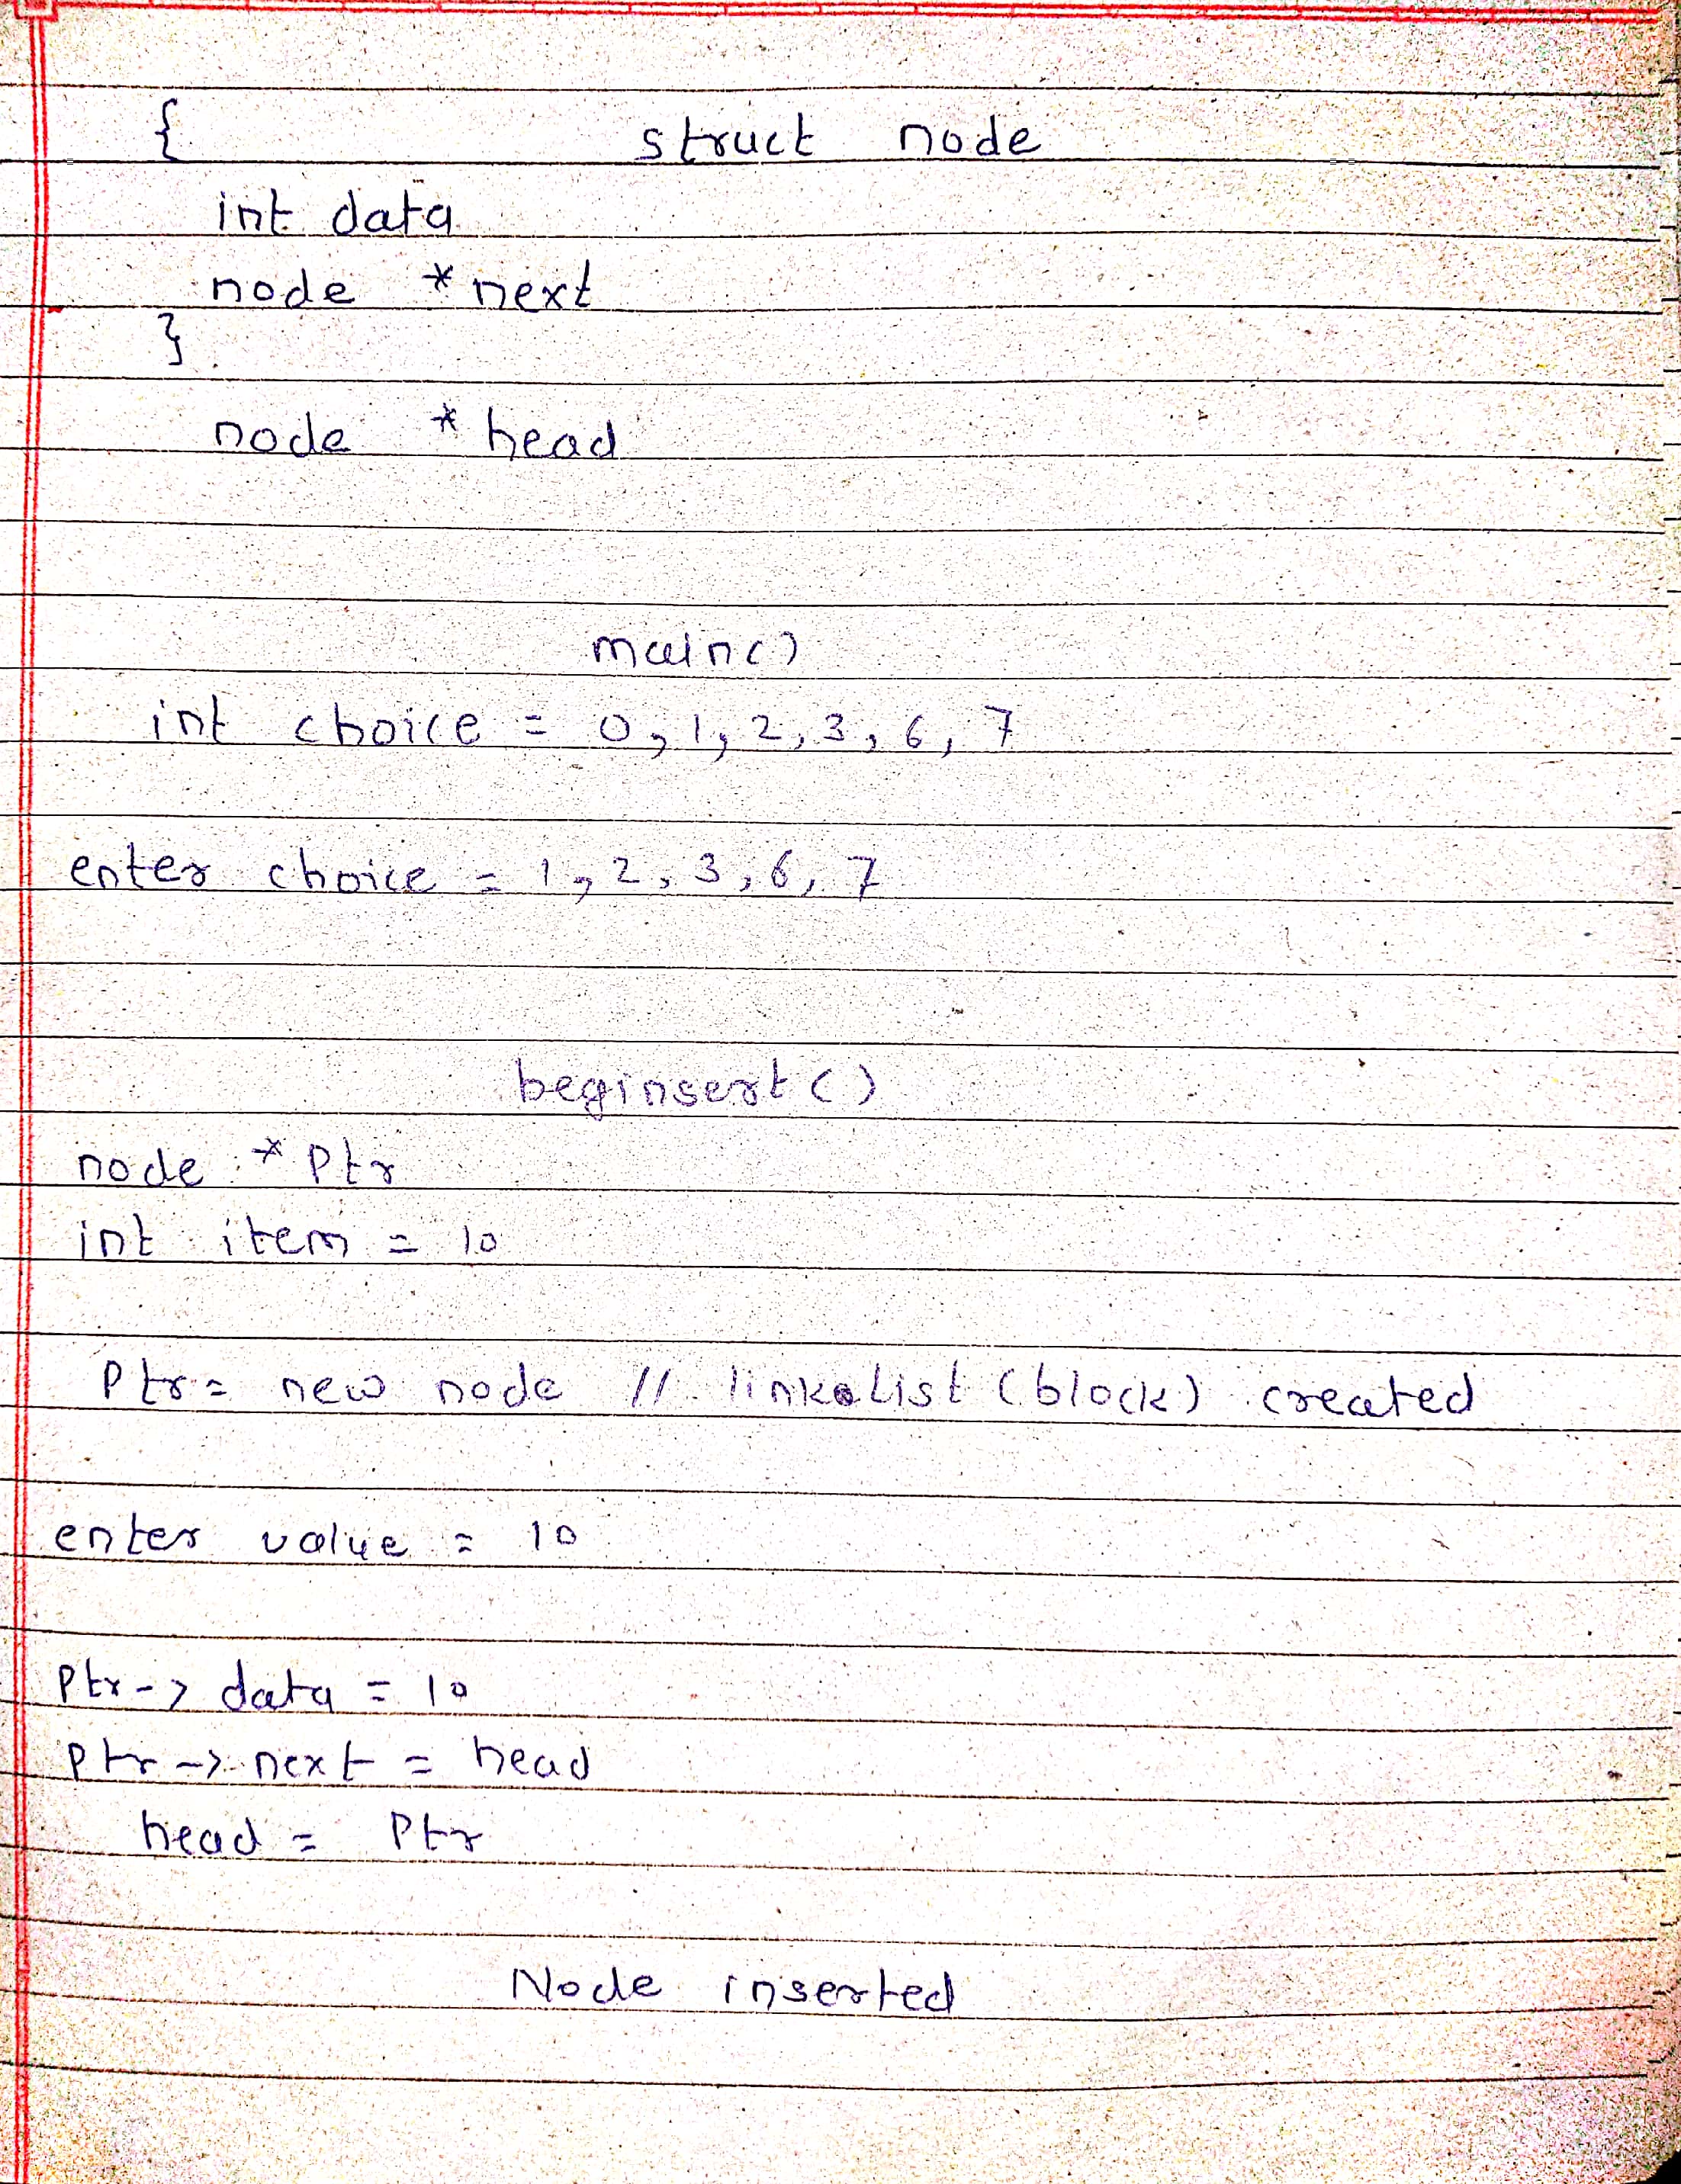 { struct node
int data
node *next
}
node *head
main()
int choice = 0, 1, 2, 3, 6, 7
enter choice = 1, 2, 3, 6, 7
beginsert()
node *Ptr
int item = 10
Ptr = new node // linkalist (block) created
enter value = 10
Ptr -> data = 10
Ptr -> next = head
head = Ptr
Node inserted